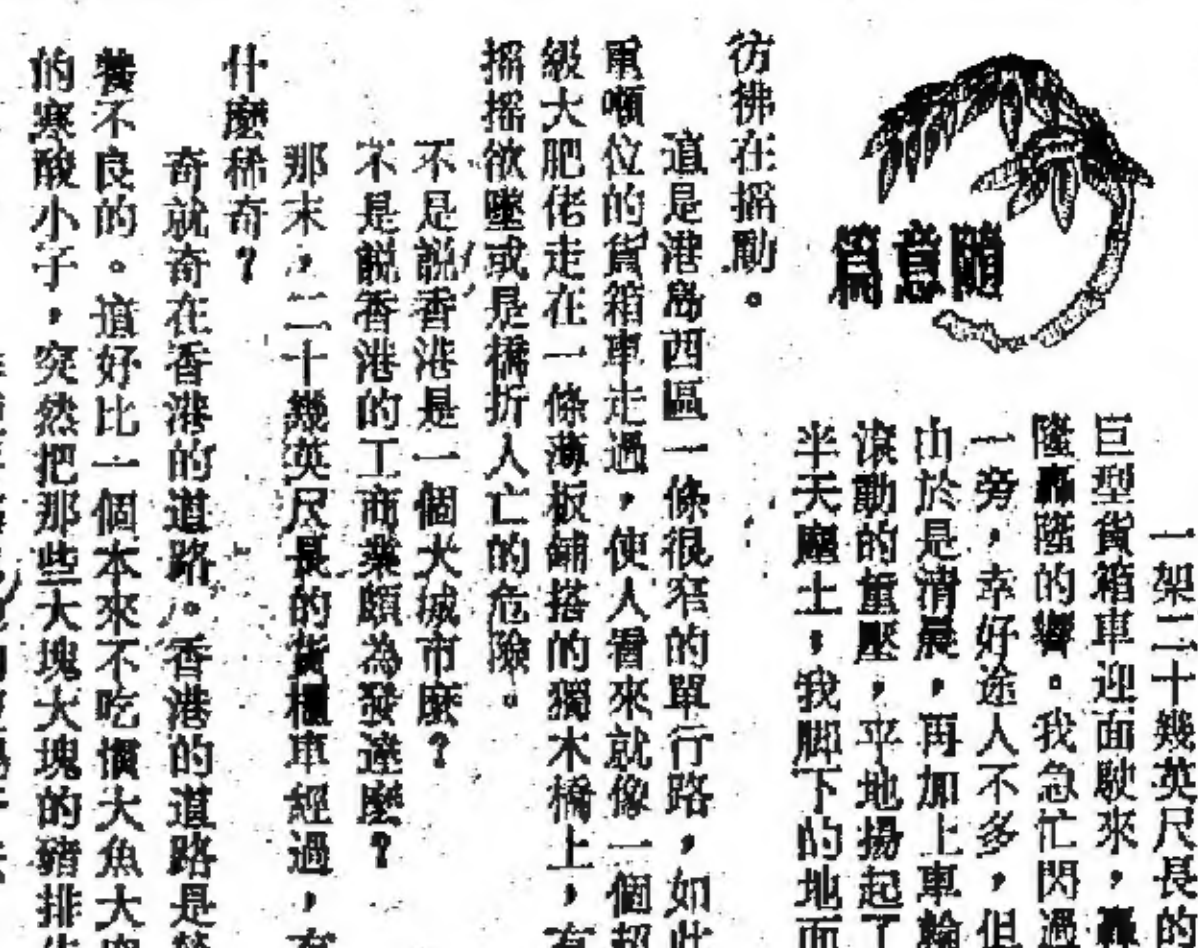 隨意寫
一架二十幾英尺長的
巨型貨箱車迎面駛來，轟
隆轟隆的響。我急忙閃過
一旁，幸好途人不多，但
由於是清晨，再加上車輪
滾動的重壓，平地揚起了
半天塵土，我脚下的地面
彷彿在搖動。
這是港島西區一條很窄的單行路，如此
重噸位的貨箱車走過，使人看來就像一個超
級大肥佬走在一條薄板鋪搭的獨木橋上，有
搖搖欲墜或是橋折人亡的危險。
不是説香港是一個大城市麼？
不是説香港的工商業頗為發達麼？
那末，二十幾英尺長的貨櫃車經過，有
什麼稀奇？
奇就奇在香港的道路。香港的道路是營
養不良的。這好比一個本來不吃慣大魚大肉
的寒酸小子，突然把那些大塊大塊的豬排